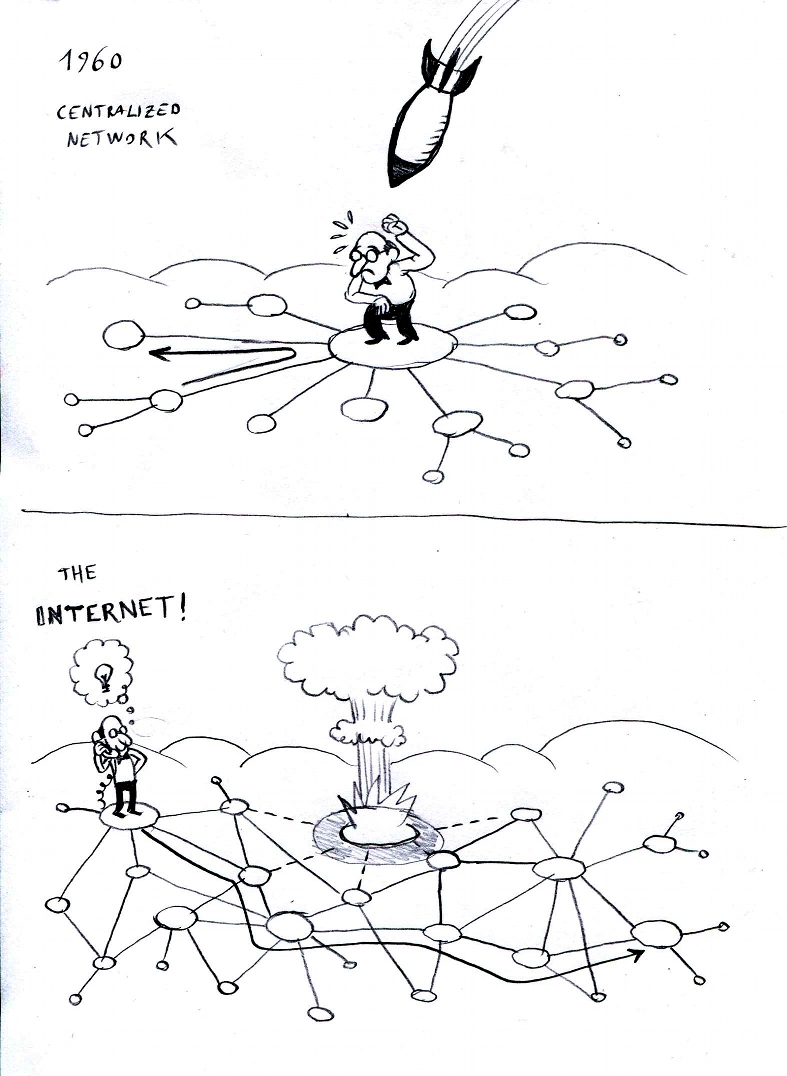 1960
CENTRALIZED
NETWORK
THE
INTERNET!